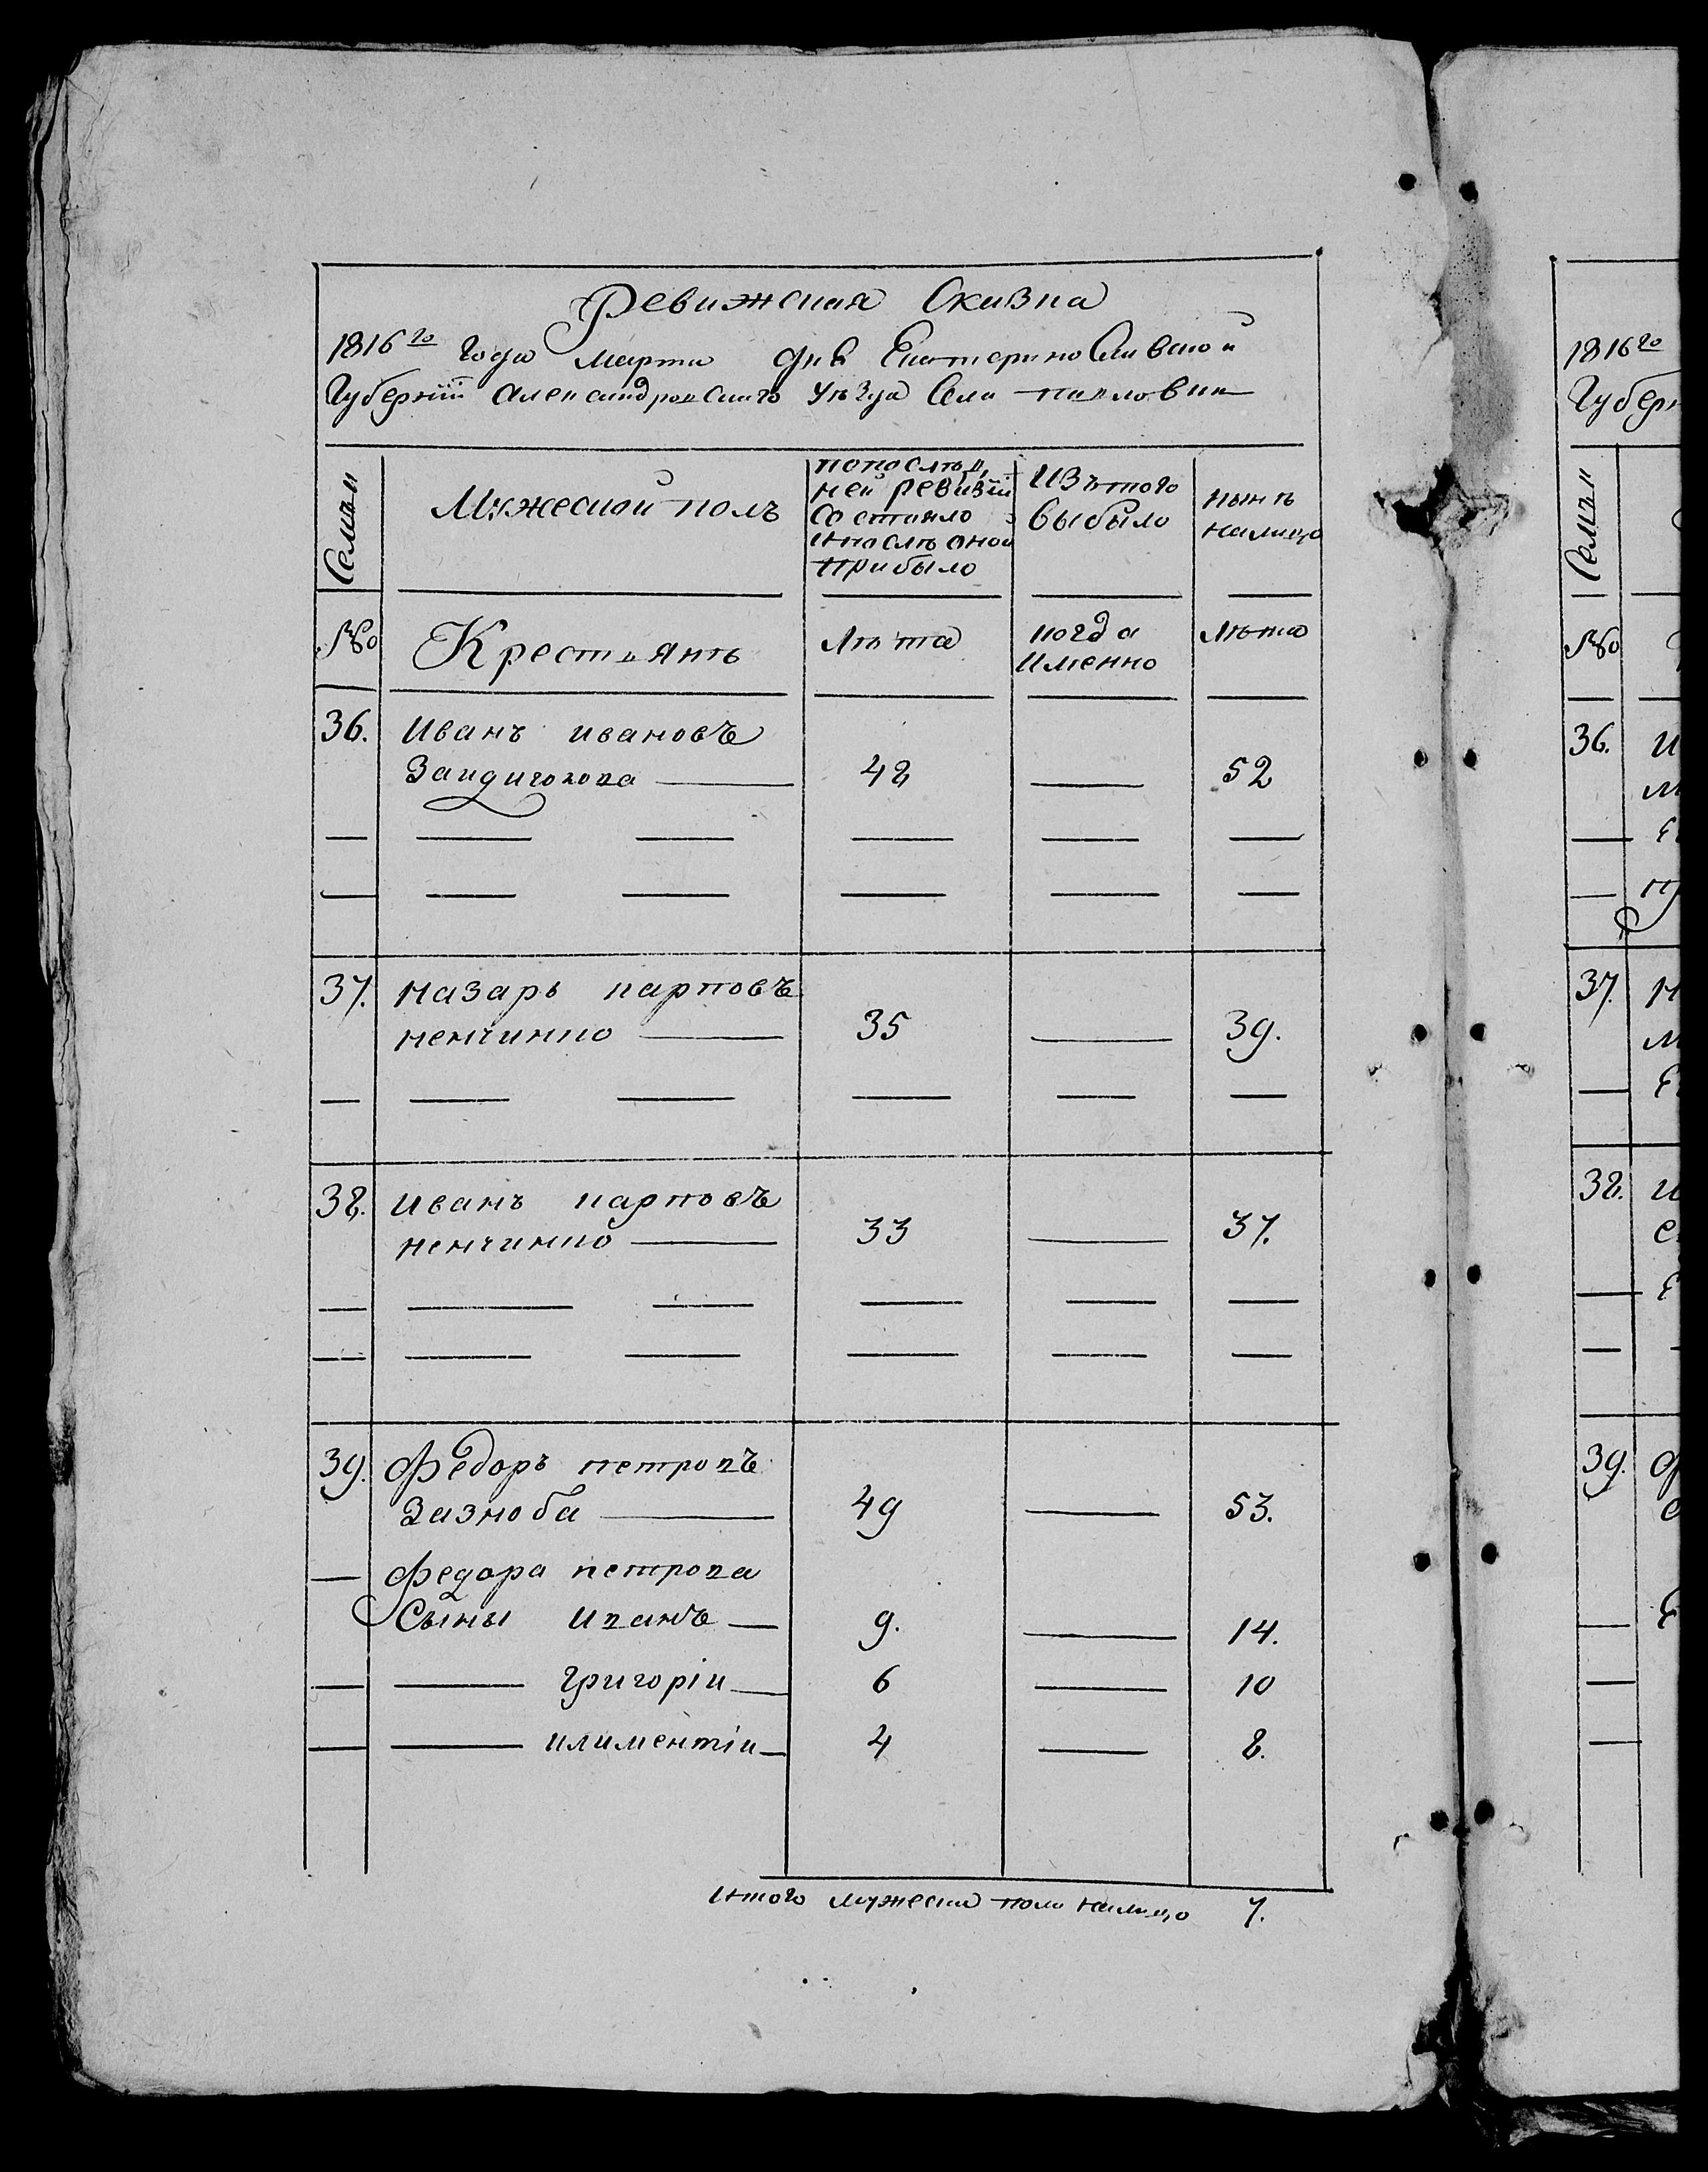 Ревижская Сказка
1816го года марта дня Екатеринославской
Губернiи Александровскаго уѣзда села павловки
Семьи
Мужеской полъ
попослѣд
ней ревизiи
состояло
ипослѣ оной
прибыло
Изътого
выбыло
нынѣ
налицо
№о
Крестьянъ
лѣта
когда
Именно
лѣта
36. Иванъ ивановъ
48 — 52
37. назаръ карповъ
немчинко — 35 — 39.
38. иванъ карповъ
немчинко — 33 — 37.
39. Федоръ петровъ
Зазноба — 49 — 53.
— федора петрова
Сыны иванъ — 9. — 14.
— — григорiи — 6 — 10
— — климентiи — 4 — 8.
итого мужеска пола налицо 7.
1816го
Губерн
Семьи
№о
36.
37.
38.
39.